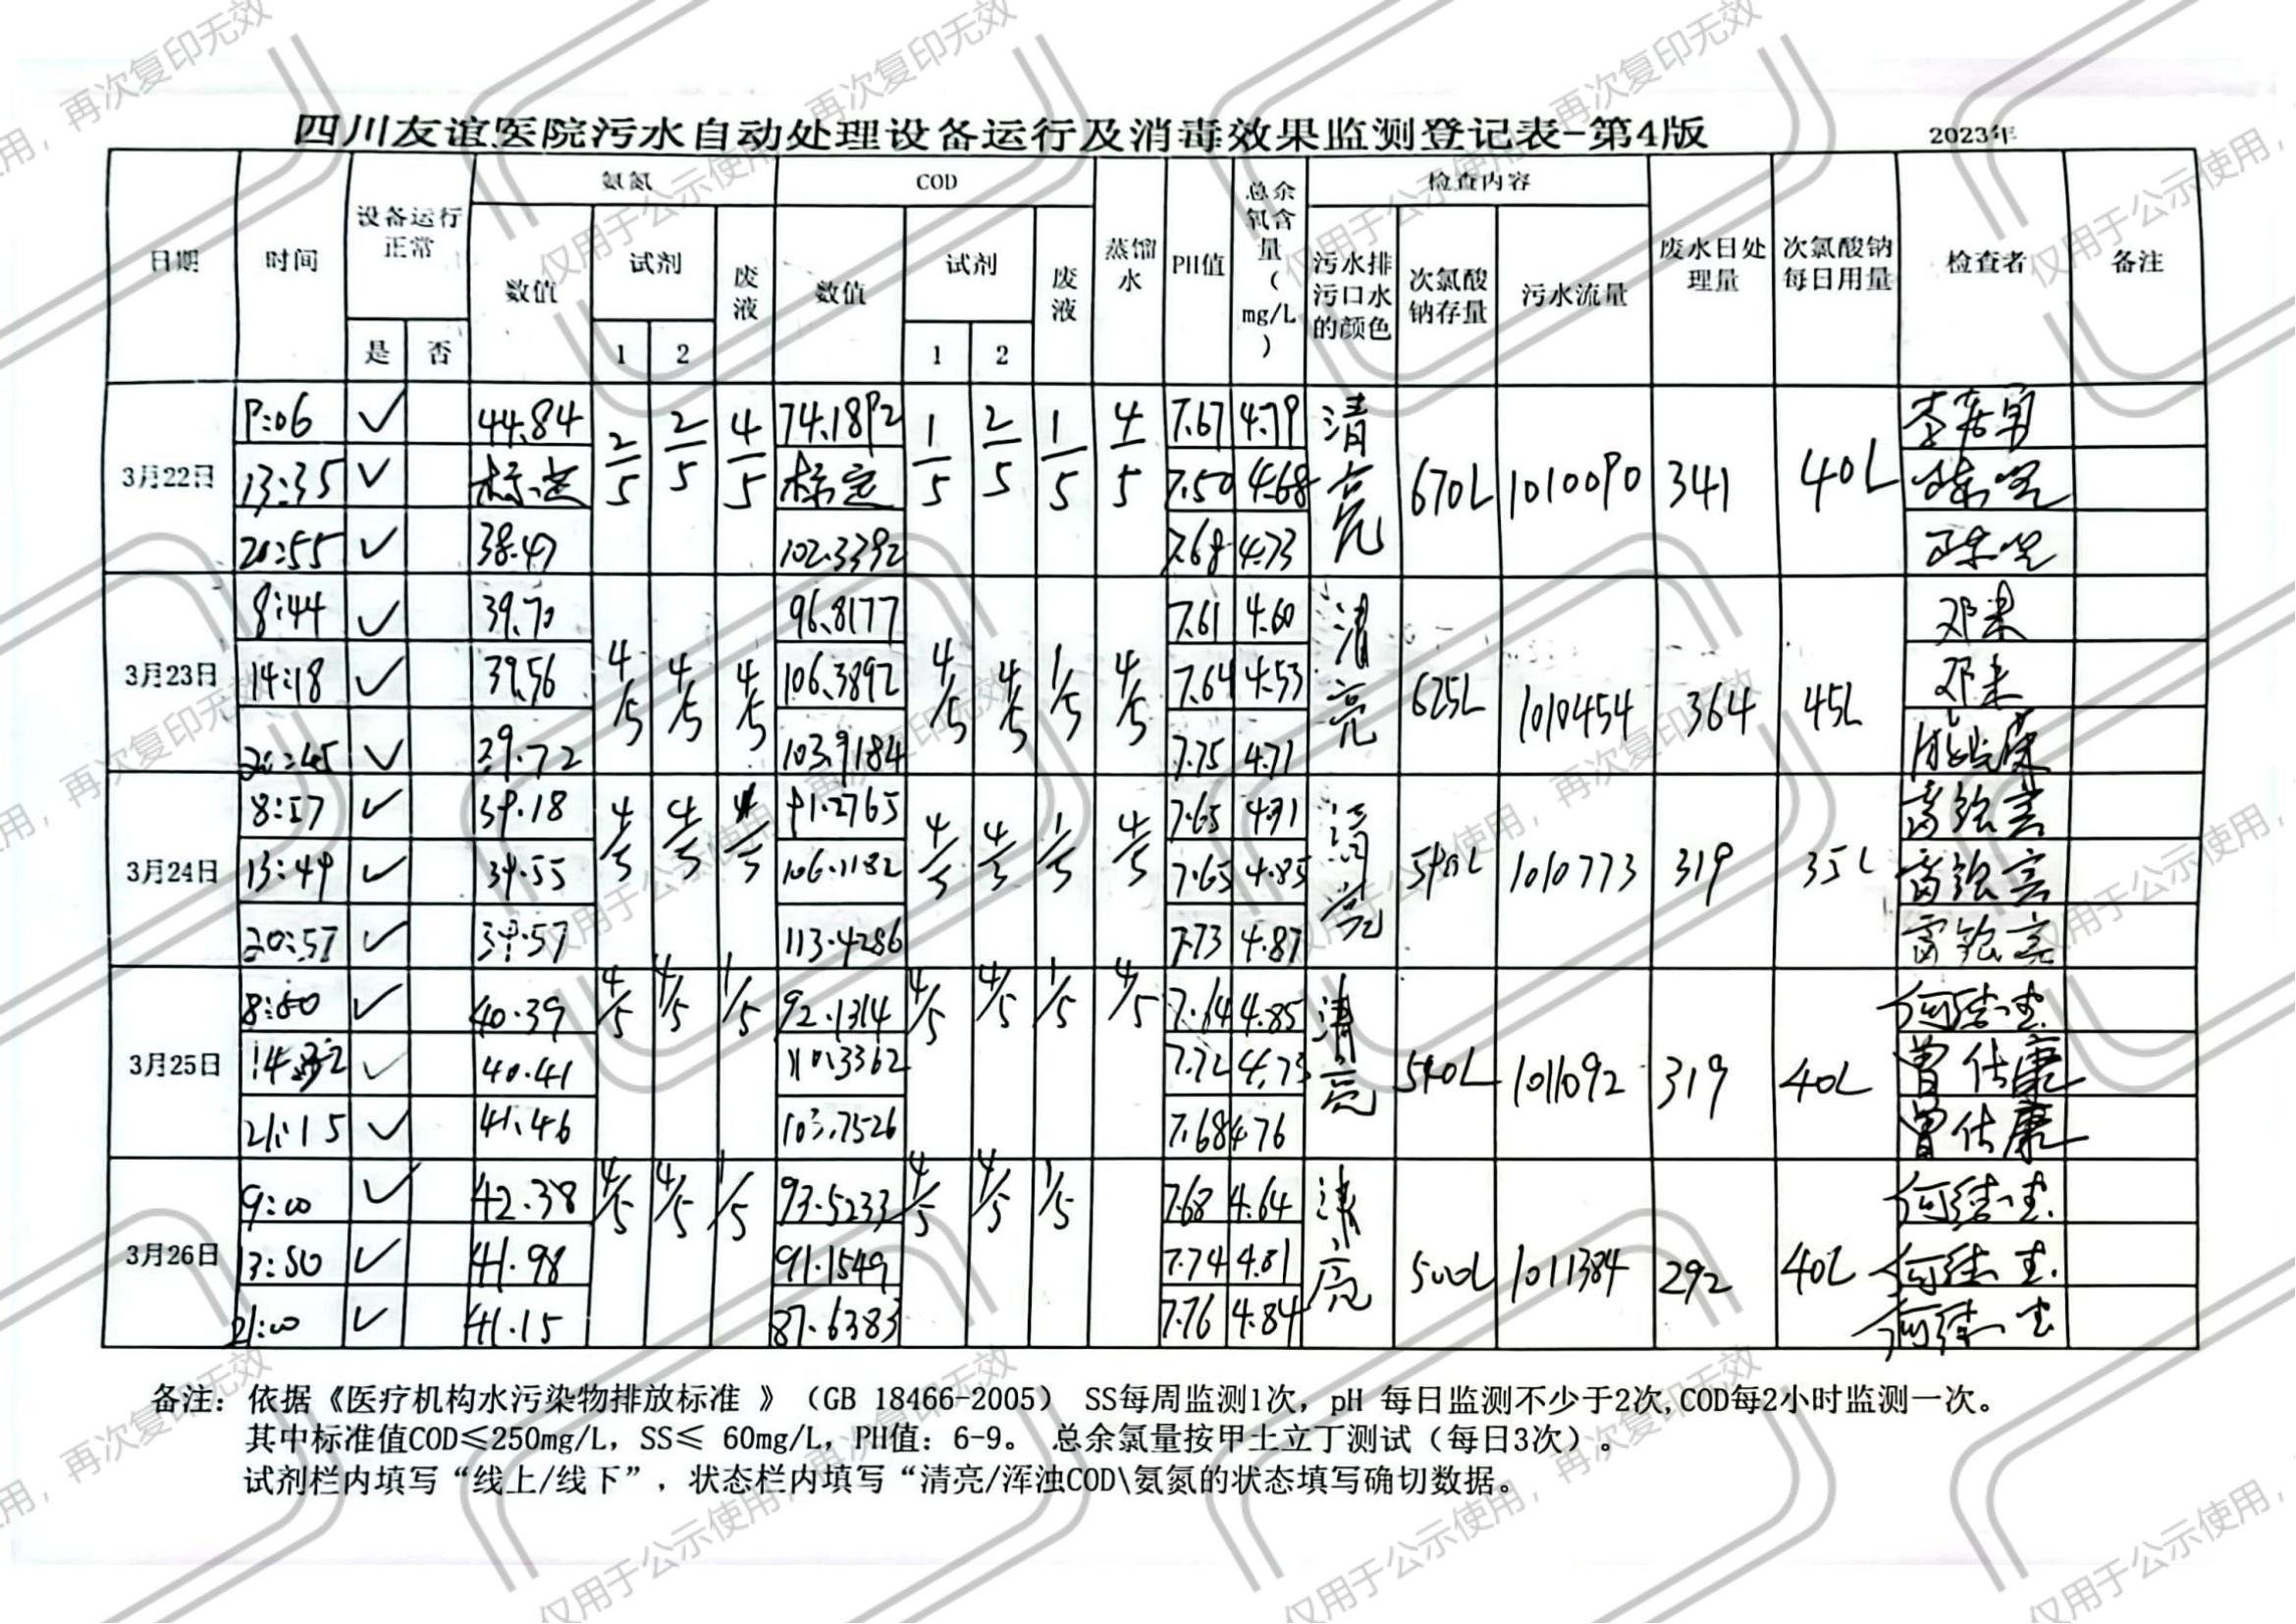 四川友谊医院污水自动处理设备运行及消毒效果监测登记表-第4版 2023年
日期 时间 设备运行正常 氨氮 COD 蒸馏水 PH值 总余氧含量(mg/L) 检查内容 废水日处理量 次氯酸钠每日用量 检查者 备注
是 否 数值 试剂 废液 数值 试剂 废液 污水排污口水的颜色 次氯酸钠存量 污水流量
1 2 1 2
3月22日 9:06 ✓ 44.84 2/5 2/5 4/5 74.1892 1/5 2/5 1/5 4/5 7.67 4.79 清亮 670L 1010090 341 40L
13:35 ✓ 标定 标定 7.50 4.68
20:55 ✓ 38.47 102.3392 7.68 4.73
3月23日 8:44 ✓ 39.70 4/5 4/5 4/5 96.8177 4/5 4/5 1/5 4/5 7.61 4.60 清亮 625L 1010454 364 45L
14:18 ✓ 39.56 106.3892 7.64 4.53
20:45 ✓ 39.72 103.9184 7.75 4.71
3月24日 8:57 ✓ 39.18 4/5 4/5 4/5 91.2765 4/5 4/5 1/5 4/5 7.65 4.91 清亮 590L 1010773 319 35L
13:49 ✓ 39.55 106.1182 7.65 4.85
20:57 ✓ 39.57 113.4286 7.73 4.87
3月25日 8:50 ✓ 40.39 4/5 4/5 1/5 92.1314 4/5 4/5 1/5 4/5 7.64 4.85 清亮 540L 1011092 319 40L
✓ 40.41 110.3362 7.72 4.73 曾仕康
21:15 ✓ 41.46 103.7526 7.68 4.76 曾仕康
3月26日 9:00 ✓ 42.38 4/5 4/5 1/5 93.5233 4/5 4/5 1/5 7.68 4.64 清亮 500L 1011384 292 40L
13:50 ✓ 41.98 91.1549 7.74 4.81
21:00 ✓ 41.15 87.6383 7.76 4.84
备注：依据《医疗机构水污染物排放标准 》（GB 18466-2005） SS每周监测1次，pH 每日监测不少于2次,COD每2小时监测一次。
其中标准值COD≤250mg/L，SS≤ 60mg/L，PH值：6-9。 总余氯量按甲土立丁测试（每日3次）。
试剂栏内填写“线上/线下”，状态栏内填写“清亮/浑浊COD\氨氮的状态填写确切数据。
仅用于公示使用，再次复印无效